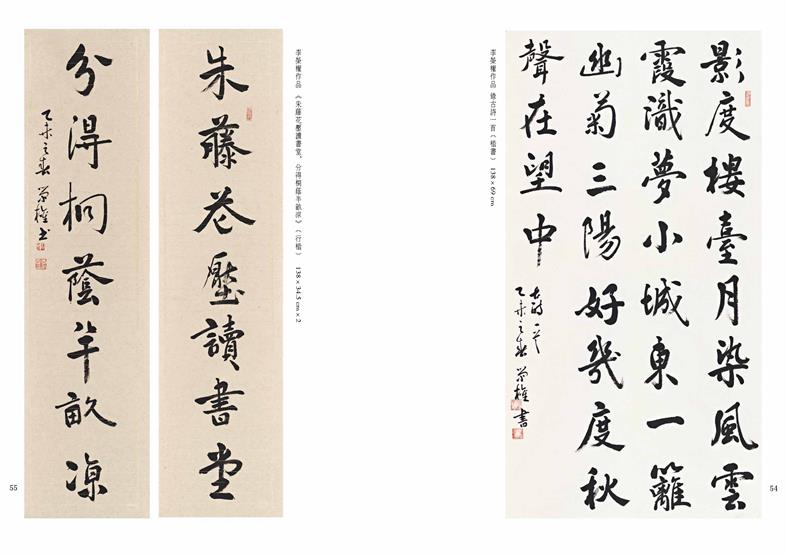 影度樓臺月染風雲
霞識夢小城東一籬
幽菊三陽好幾度秋
聲在望中
古詩一首
乙未之春 榮權書
李榮權作品 錄古詩一首（楷書） 138×69 cm
54
李榮權作品 《朱藤花壓讀書堂，分得桐蔭半畝涼》（行楷） 138×34.5 cm×2
朱藤花壓讀書堂
分得桐蔭半畝凉
乙未之春 榮權書
55